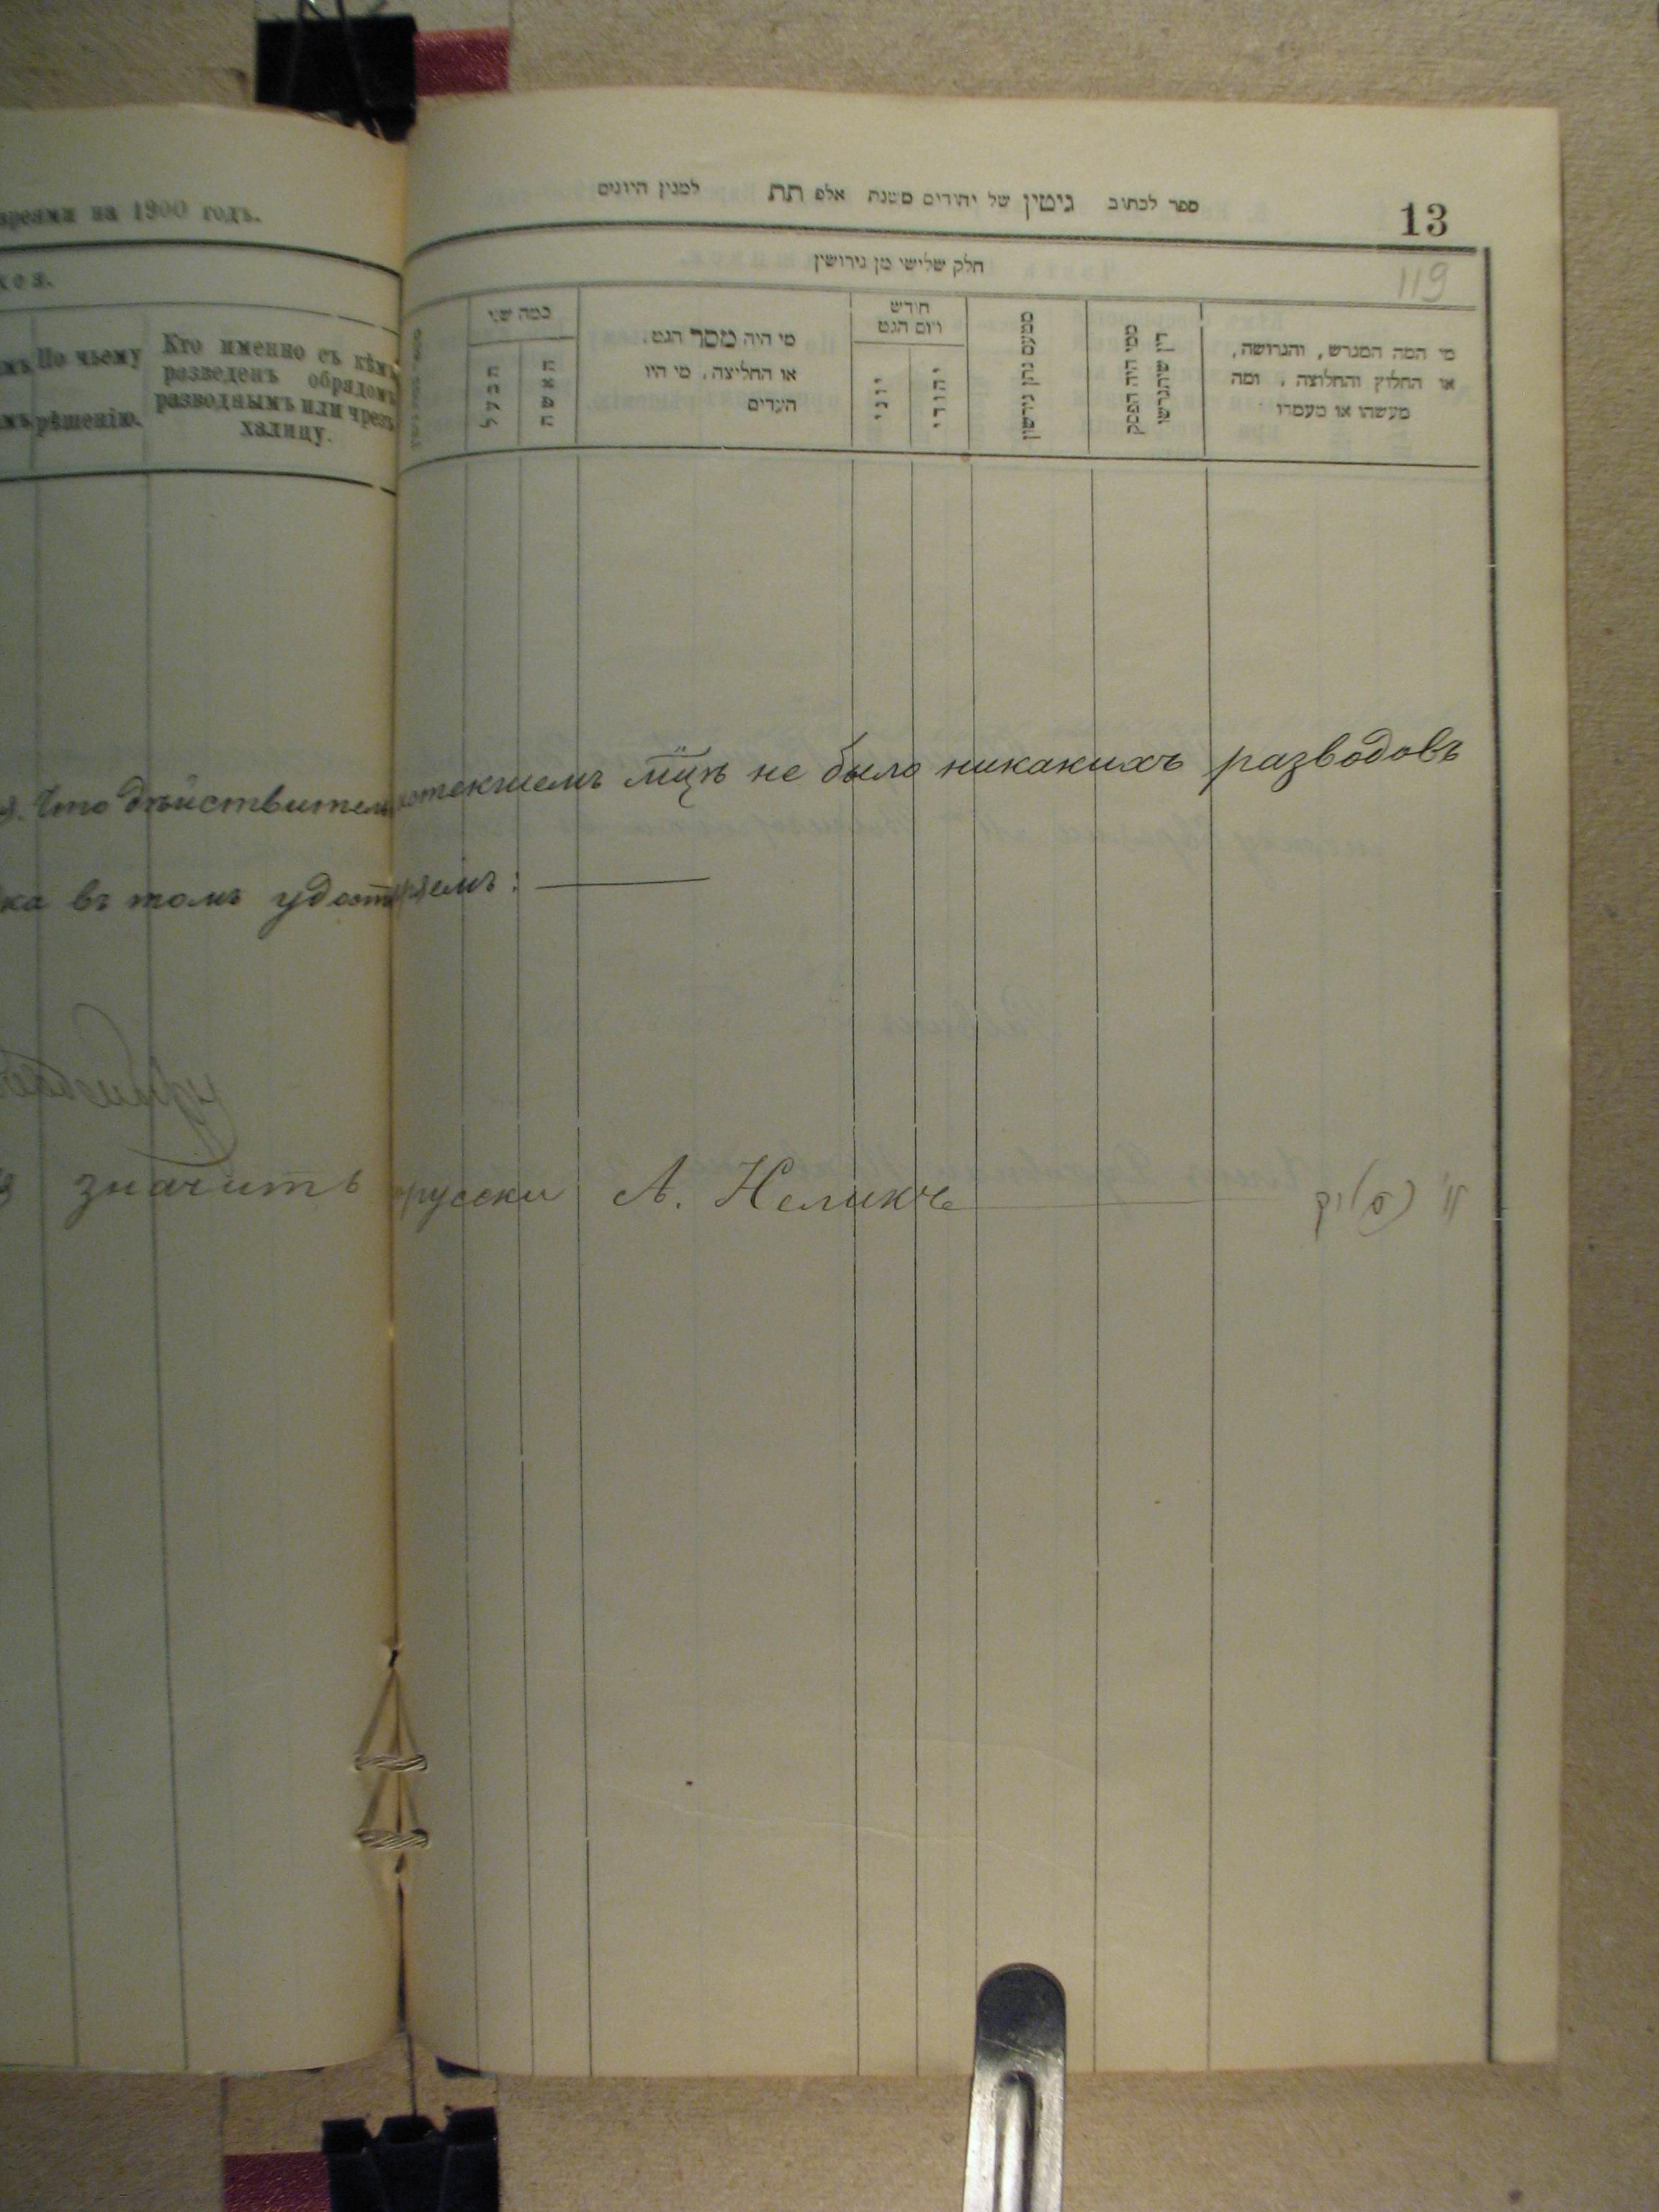 на 1900 годъ.
По чьему
рѣшенію.
Кто именно съ кѣмъ
разведенъ обрядомъ
разводнымъ или чрезъ
халицу.
ספר לכתוב גיטין של יהודים משנת אלף תת למנין היונים
13
119
חלק שלישי מן גירושין
כמה שני
הבעל
האשה
מי היה מסדר הגט,
או החליצה, מי היו
העדים
חודש
ויום הגט
יוני
יהודי
מטעם נתן גירושין
ממי היה הפסק
דין שיתגרשו
מי המה המגרש, והגרושה,
או החלוץ והחלוצה, ומה
מעשהו או מעמדו
Что дѣйствительно истекшемъ мцѣ не было никакихъ разводовъ
въ томъ удостовѣряемъ:
значитъ русски А. Неликъ